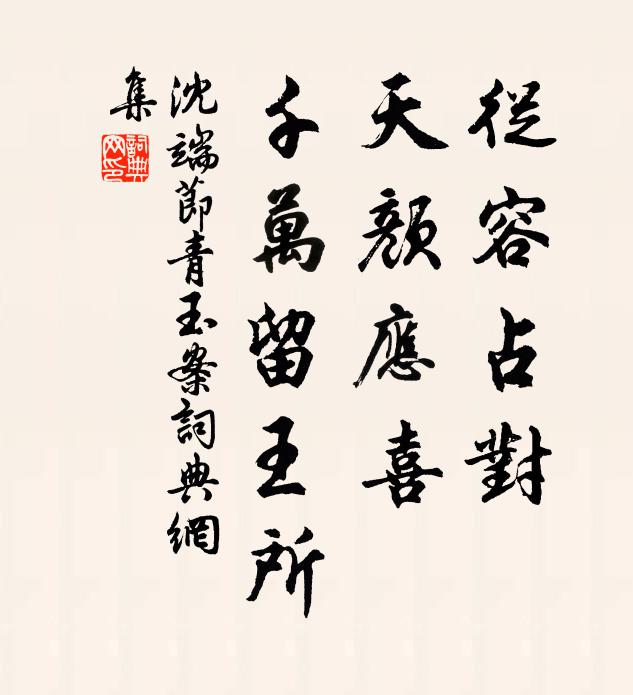 從容占對
天顏應喜
千萬留王所
沈端節青玉案詞典網
集
詞典
网印